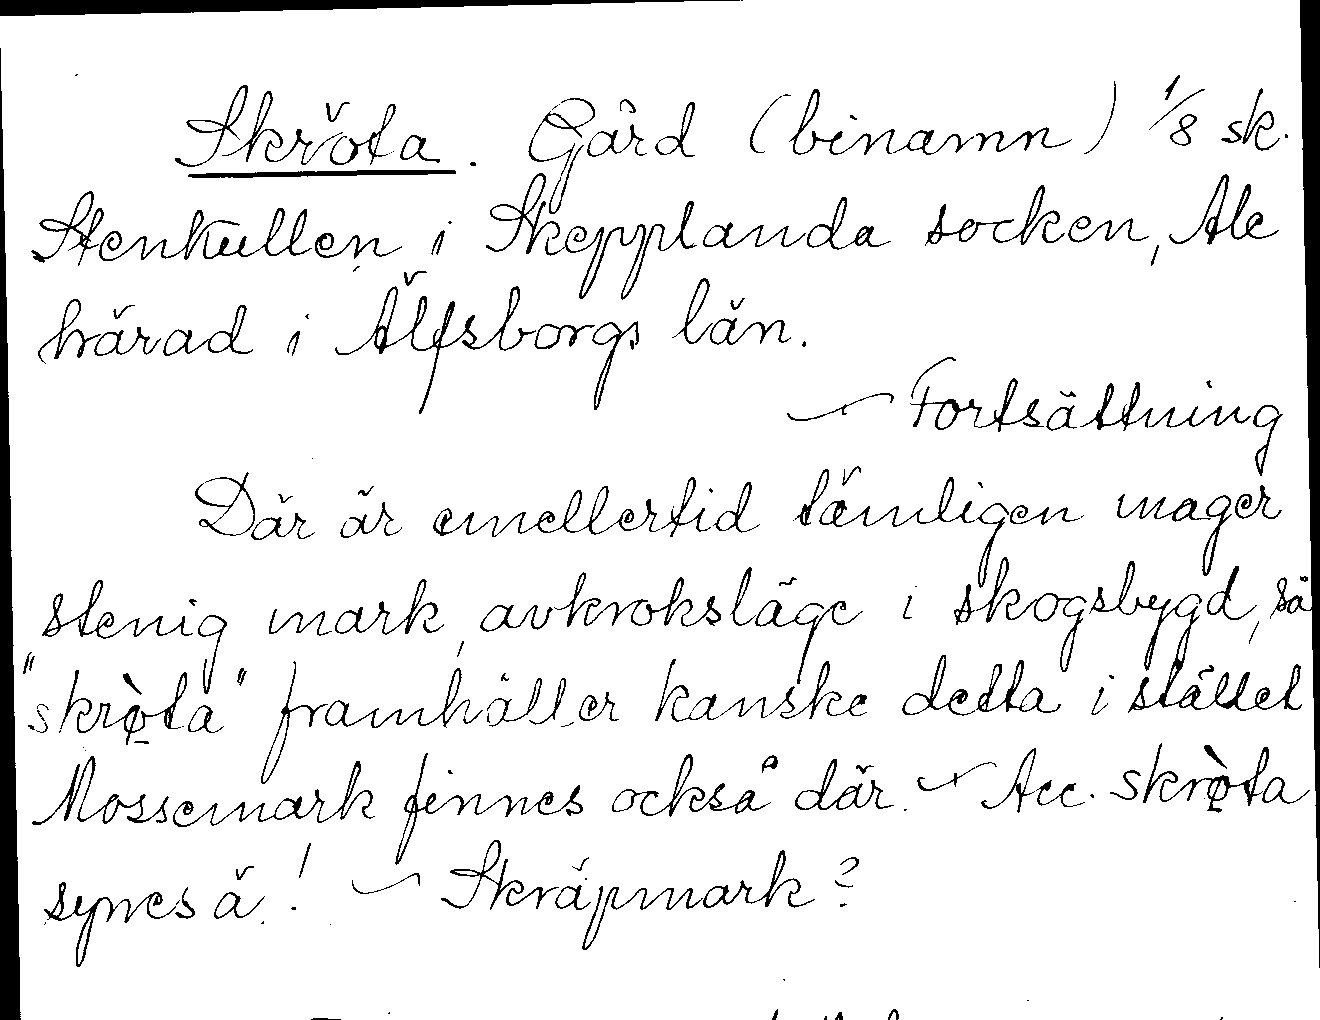 Skröta. Gård (binamn) 1/8 sk.
Stenkullen i Skepplanda socken, Ale
härad i Älfsborgs län.
— Fortsättning
Där är emellertid tämligen mager
stenig mark, avkroksläge i skogsbygd, så
"skrò̤ta" framhäller kanske detta i stället
Mossemark finnes också där. — Acc. skrò̤ta
synes ä! — Skräpmark?